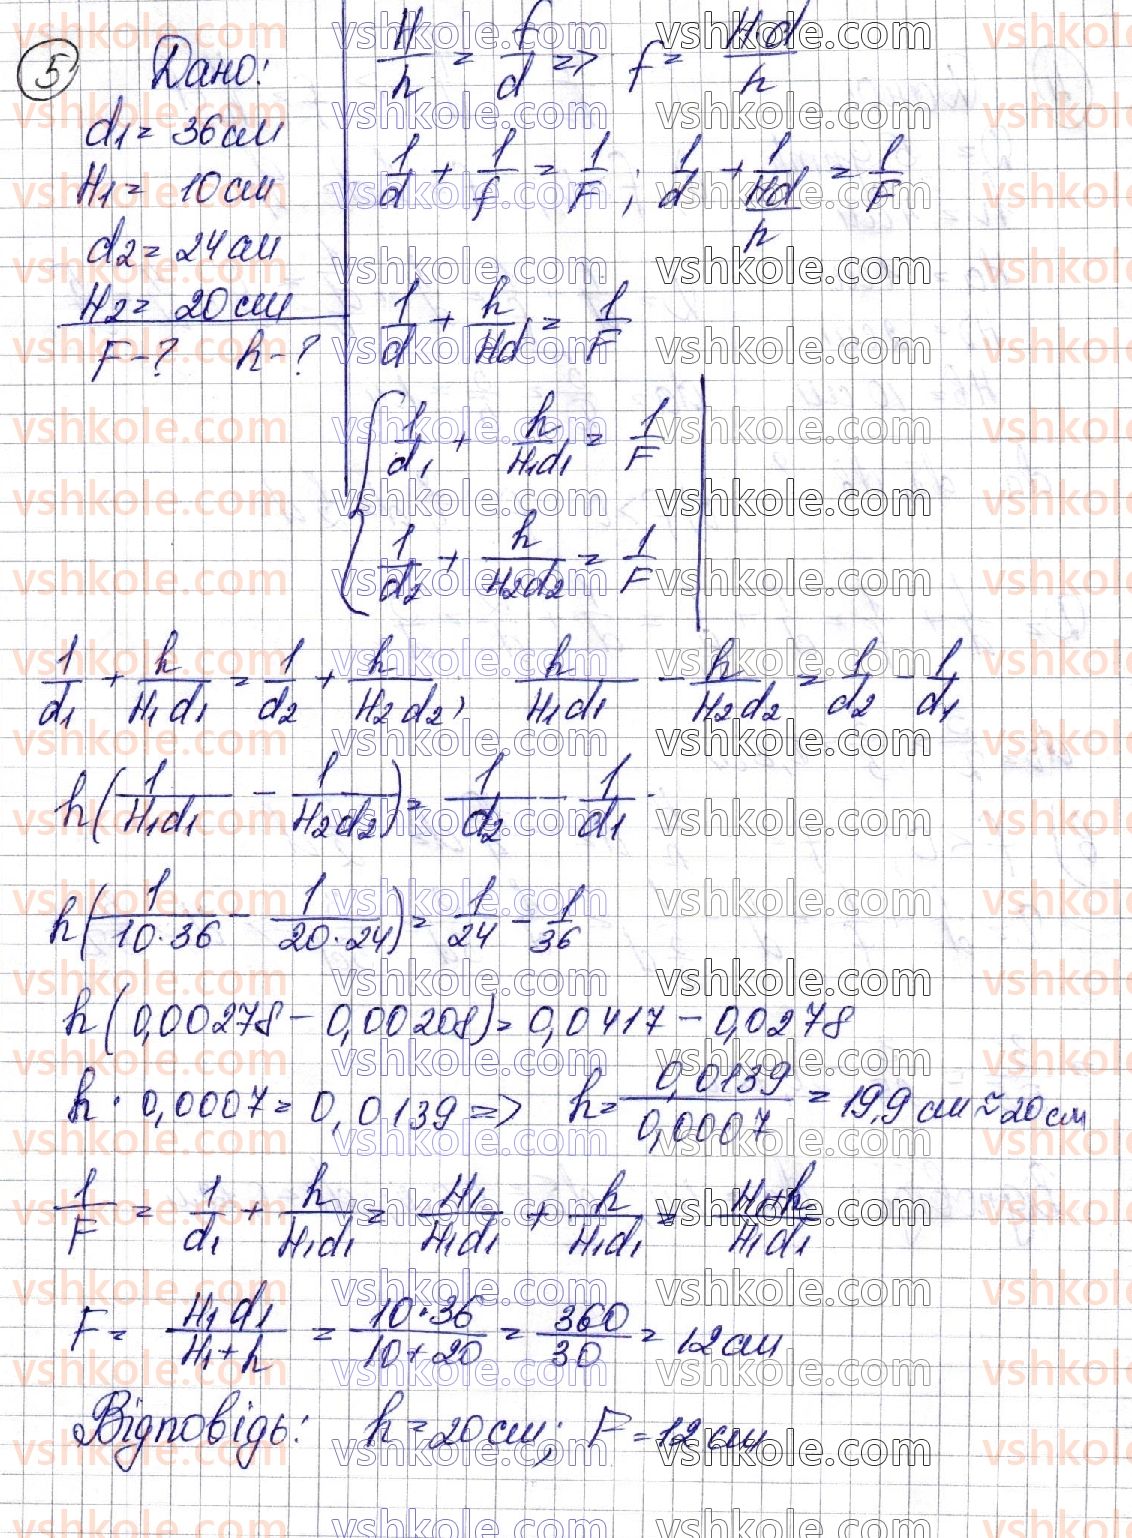 5 Дано:
d₁ = 36 см
H₁ = 10 см
d₂ = 24 см
H₂ = 20 см
F - ? h - ?
H/h = f/d => f = H·d/h
1/d + 1/f = 1/F ; 1/d + 1/(Hd/h) = 1/F
1/d + h/Hd = 1/F
{ 1/d₁ + h/H₁d₁ = 1/F
1/d₂ + h/H₂d₂ = 1/F
1/d₁ + h/H₁d₁ = 1/d₂ + h/H₂d₂ ; h/H₁d₁ - h/H₂d₂ = 1/d₂ - 1/d₁
h(1/H₁d₁ - 1/H₂d₂) = 1/d₂ - 1/d₁
h(1/10·36 - 1/20·24) = 1/24 - 1/36
h(0,00278 - 0,00208) = 0,0417 - 0,0278
h · 0,0007 = 0,0139 => h = 0,0139/0,0007 = 19,9 см ≈ 20 см
1/F = 1/d₁ + h/H₁d₁ = H₁/H₁d₁ + h/H₁d₁ = H₁+h/H₁d₁
F = H₁d₁/H₁+h = 10·36/10+20 = 360/30 = 12 см
Відповідь: h = 20 см; F = 12 см
vshkole.com